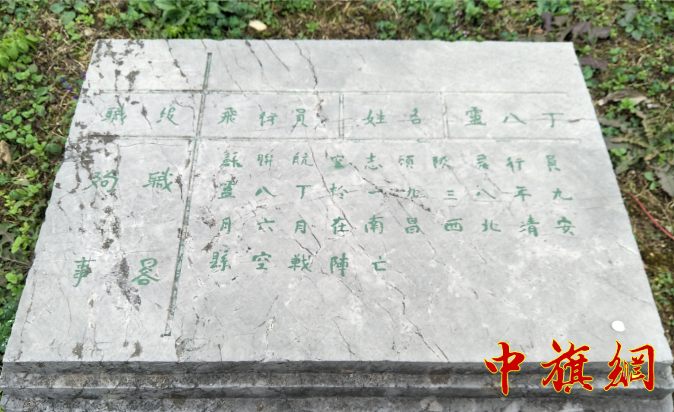 職级 飛行員 姓名 靈八丁
殉職
事畧
蘇聯航空志願隊飛行員
靈八丁於一九三八年九
月六月在南昌西北清安
縣空戰陣亡
中旗網